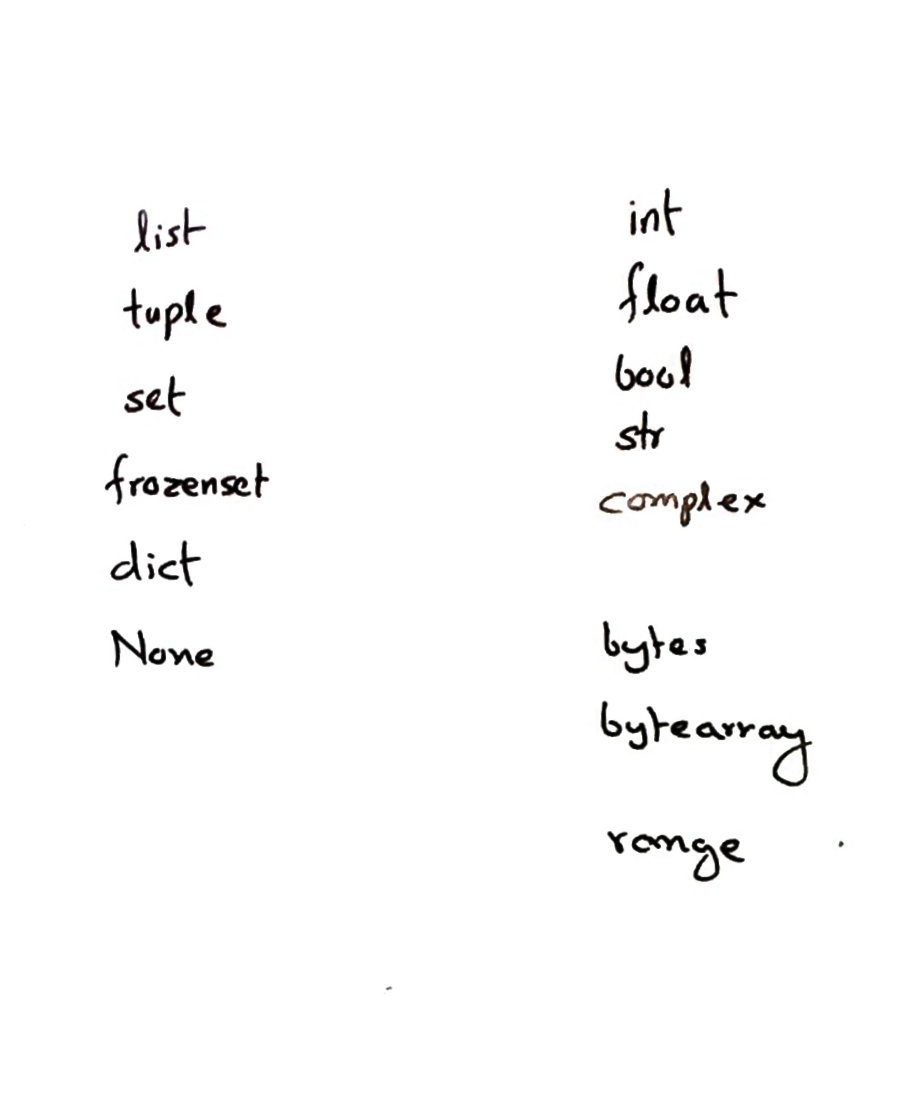 list
tuple
set
frozenset
dict
None
int
float
bool
str
complex
bytes
bytearray
range